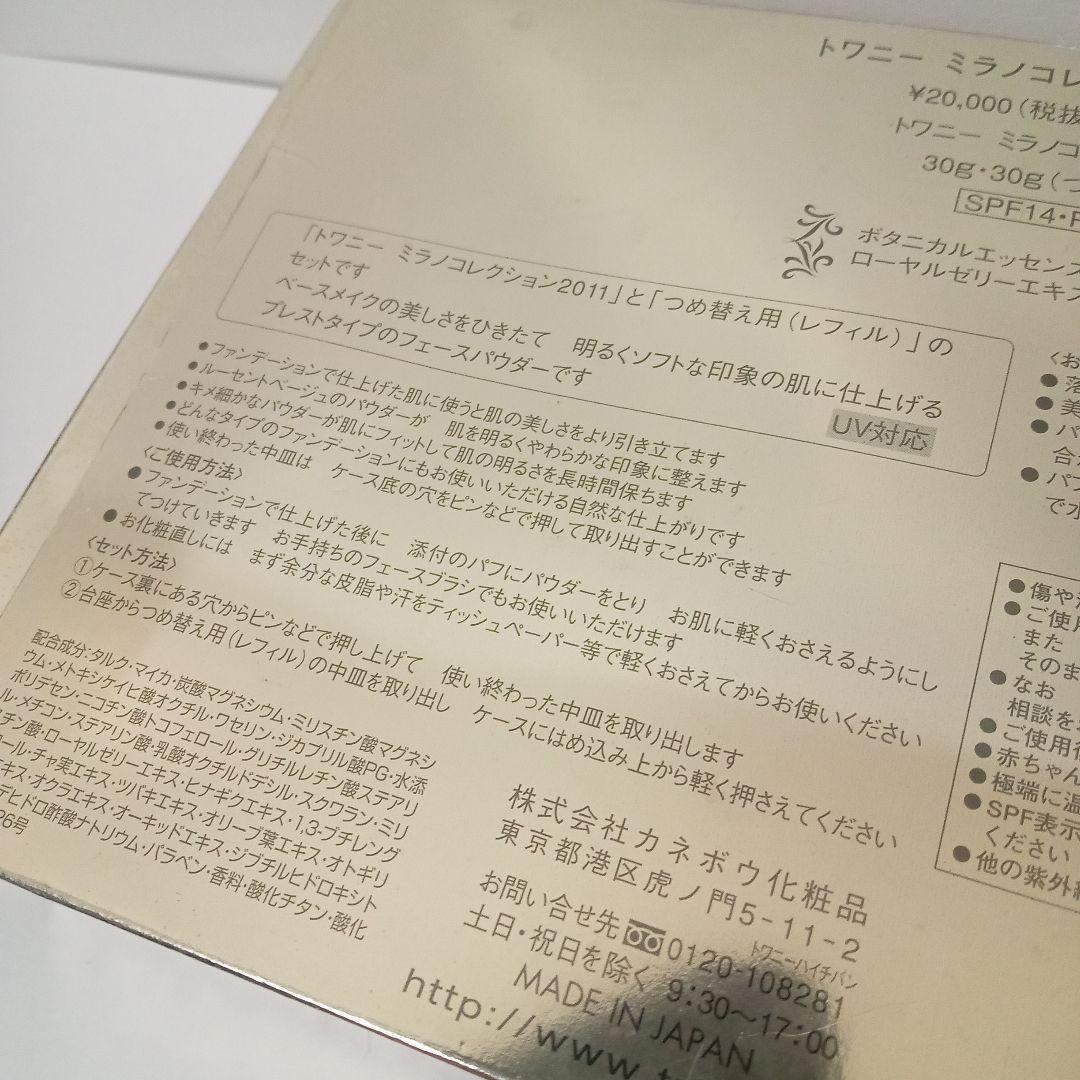 トワニー ミラノコレ
¥20,000(税抜
トワニー ミラノコ
30g・30g(つ
SPF14・P
ボタニカルエッセンス
ローヤルゼリーエキス
「トワニー ミラノコレクション2011」と「つめ替え用(レフィル)」の
セットです
ベースメイクの美しさをひきたて 明るくソフトな印象の肌に仕上げる
プレストタイプのフェースパウダーです
UV対応
●ファンデーションで仕上げた肌に使うと肌の美しさをより引き立てます
●ルーセントベージュのパウダーが 肌を明るくやわらかな印象に整えます
●キメ細かなパウダーが肌にフィットして肌の明るさを長時間保ちます
●どんなタイプのファンデーションにもお使いいただける自然な仕上がりです
●使い終わった中皿は ケース底の穴をピンなどで押して取り出すことができます
〈ご使用方法〉
●ファンデーションで仕上げた後に 添付のパフにパウダーをとり お肌に軽くおさえるようにし
てつけていきます お手持ちのフェースブラシでもお使いいただけます
●お化粧直しには まず余分な皮脂や汗をティッシュペーパー等で軽くおさえてからお使いください
〈セット方法〉
①ケース裏にある穴からピンなどで押し上げて 使い終わった中皿を取り出します
②台座からつめ替え用(レフィル)の中皿を取り出し ケースにはめ込み上から軽く押さえてください
配合成分:タルク・マイカ・炭酸マグネシウム・ミリスチン酸マグネシ
ウム・メトキシケイヒ酸オクチル・ワセリン・ジカプリル酸PG・水添
ポリデセン・ニコチン酸トコフェロール・グリチルレチン酸ステアリ
ル・メチコン・ステアリン酸・乳酸オクチルドデシル・スクワラン・ミリ
スチン酸・ローヤルゼリーエキス・ヒナギクエキス・1,3-ブチレング
ール・チャ実エキス・ツバキエキス・オリーブ葉エキス・オトギリ
キス・オクラエキス・オーキッドエキス・ジブチルヒドロキシト
デヒドロ酢酸ナトリウム・パラベン・香料・酸化チタン・酸化
6号
株式会社カネボウ化粧品
東京都港区虎ノ門5-11-2
お問い合せ先 0120-108281
トワニーハイチバン
土日・祝日を除く 9:30〜17:00
MADE IN JAPAN
http://www.
〈お
● 落
● 美
● パ
合
● パフ
で水
● 傷や
● ご使用
また
そのま
● なお
相談を
● ご使用後
● 赤ちゃん
● 極端に温
● SPF表示
ください
● 他の紫外線